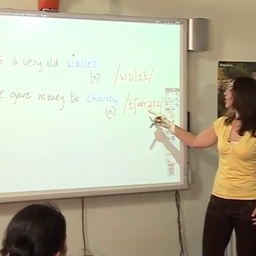 s a very old wallet /wɒlɪt/
(n)
e gave money to charity /tʃærətɪ/
(n)